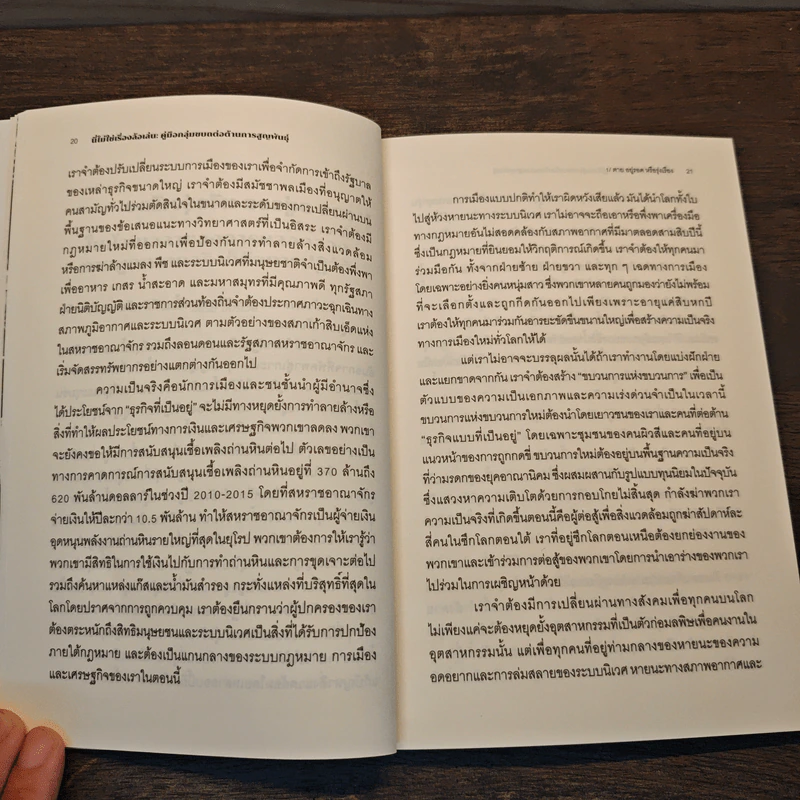 20 นี่ไม่ใช่เรื่องล้อเล่น: คู่มือกลุ่มขบถต่อต้านการสูญพันธุ์
เราจำต้องปรับเปลี่ยนระบบการเมืองของเราเพื่อจำกัดการเข้าถึงรัฐบาล
ของเหล่าธุรกิจขนาดใหญ่ เราจำต้องมีสมัชชาพลเมืองที่อนุญาตให้
คนสามัญทั่วไปร่วมตัดสินใจในขนาดและระดับของการเปลี่ยนผ่านบน
พื้นฐานของข้อเสนอแนะทางวิทยาศาสตร์ที่เป็นอิสระ เราจำต้องมี
กฎหมายใหม่ที่ออกมาเพื่อป้องกันการทำลายล้างสิ่งแวดล้อม
หรือการฆ่าล้างแมลง พืช และระบบนิเวศที่มนุษยชาติจำเป็นต้องพึ่งพา
เพื่ออาหาร เกสร น้ำสะอาด และมหาสมุทรที่มีคุณภาพดี ทุกรัฐสภา
ฝ่ายนิติบัญญัติ และราชการส่วนท้องถิ่นจำต้องประกาศภาวะฉุกเฉินทาง
สภาพภูมิอากาศและระบบนิเวศ ตามตัวอย่างของสภาเก้าสิบเอ็ดแห่ง
ในสหราชอาณาจักร รวมถึงลอนดอนและรัฐสภาสหราชอาณาจักร และ
เริ่มจัดสรรทรัพยากรอย่างแตกต่างกันออกไป
ความเป็นจริงคือนักการเมืองและชนชั้นนำผู้มีอำนาจซึ่ง
ได้ประโยชน์จาก “ธุรกิจที่เป็นอยู่” จะไม่มีทางหยุดยั้งการทำลายล้างหรือ
สิ่งที่ทำให้ผลประโยชน์ทางการเงินและเศรษฐกิจพวกเขาลดลง พวกเขา
จะยังคงขอให้มีการสนับสนุนเชื้อเพลิงถ่านหินต่อไป ตัวเลขอย่างเป็น
ทางการคาดการณ์การสนับสนุนเชื้อเพลิงถ่านหินอยู่ที่ 370 ล้านถึง
620 พันล้านดอลลาร์ในช่วงปี 2010-2015 โดยที่สหราชอาณาจักร
จ่ายเงินให้ปีละกว่า 10.5 พันล้าน ทำให้สหราชอาณาจักรเป็นผู้จ่ายเงิน
อุดหนุนพลังงานถ่านหินรายใหญ่ที่สุดในยุโรป พวกเขาต้องการให้เรารู้ว่า
พวกเขามีสิทธิในการใช้เงินไปกับการทำถ่านหินและการขุดเจาะต่อไป
รวมถึงค้นหาแหล่งแก๊สและน้ำมันสำรอง กระทั่งแหล่งที่บริสุทธิ์ที่สุดใน
โลกโดยปราศจากการถูกควบคุม เราต้องยืนกรานว่าผู้ปกครองของเรา
ต้องตระหนักถึงสิทธิมนุษยชนและระบบนิเวศเป็นสิ่งที่ได้รับการปกป้อง
ภายใต้กฎหมาย และต้องเป็นแกนกลางของระบบกฎหมาย การเมือง
และเศรษฐกิจของเราในตอนนี้
1/ ตาย อยู่รอด หรือรุ่งเรือง 21
การเมืองแบบปกติทำให้เราผิดหวังเสียแล้ว มันได้นำโลกทั้งใบ
ไปสู่ห้วงหายนะทางระบบนิเวศ เราไม่อาจจะถือเอาหรือพึ่งพาเครื่องมือ
ทางกฎหมายอันไม่สอดคล้องกับสภาพอากาศที่มีมาตลอดสามสิบปีนี้
ซึ่งเป็นกฎหมายที่ยินยอมให้วิกฤติการณ์เกิดขึ้น เราจำต้องให้ทุกคนมา
ร่วมมือกัน ทั้งจากฝ่ายซ้าย ฝ่ายขวา และทุก ๆ เฉดทางการเมือง
โดยเฉพาะอย่างยิ่งคนหนุ่มสาว ซึ่งพวกเขาหลายคนถูกมองว่ายังไม่พร้อม
ที่จะเลือกตั้งและถูกกีดกันออกไปเพียงเพราะอายุแค่สิบหกปี
เราต้องให้ทุกคนมาร่วมกันอารยะขัดขืนขนานใหญ่เพื่อสร้างความเป็นจริง
ทางการเมืองใหม่ทั่วโลกให้ได้
แต่เราไม่อาจจะบรรลุผลนั้นได้ถ้าเราทำงานโดยแบ่งฝักฝ่าย
และแยกขาดจากกัน เราจำต้องสร้าง “ขบวนการแห่งขบวนการ” เพื่อเป็น
ตัวแบบของความเป็นเอกภาพและความเร่งด่วนจำเป็นในเวลานี้
ขบวนการแห่งขบวนการใหม่ต้องนำโดยเยาวชนของเราและคนที่ต่อต้าน
“ธุรกิจแบบที่เป็นอยู่” โดยเฉพาะชุมชนของคนผิวสีและคนที่อยู่บน
แนวหน้าของการถูกกดขี่ ขบวนการใหม่ต้องอยู่บนพื้นฐานความเป็นจริง
ที่ว่ามรดกของยุคอาณานิคม ซึ่งผสมผสานกับรูปแบบทุนนิยมในปัจจุบัน
ซึ่งแสวงหาความเติบโตด้วยการกอบโกยไม่สิ้นสุด กำลังฆ่าพวกเรา
ความเป็นจริงที่เกิดขึ้นตอนนี้คือผู้ต่อสู้เพื่อสิ่งแวดล้อมถูกฆ่าสัปดาห์ละ
สี่คนในซีกโลกตอนใต้ เราที่อยู่ซีกโลกตอนเหนือต้องยกย่องงานของ
พวกเขาและเข้าร่วมการต่อสู้ของพวกเขาโดยการนำเอาร่างของพวกเรา
ไปร่วมในการเผชิญหน้าด้วย
เราจำต้องมีการเปลี่ยนผ่านทางสังคมเพื่อทุกคนบนโลก
ไม่เพียงแค่จะต้องหยุดยั้งอุตสาหกรรมที่เป็นตัวก่อมลพิษเพื่อคนงานใน
อุตสาหกรรมนั้น แต่เพื่อทุกคนที่อยู่ท่ามกลางของหายนะของความ
อดอยากและการล่มสลายของระบบนิเวศ หายนะทางสภาพอากาศและ